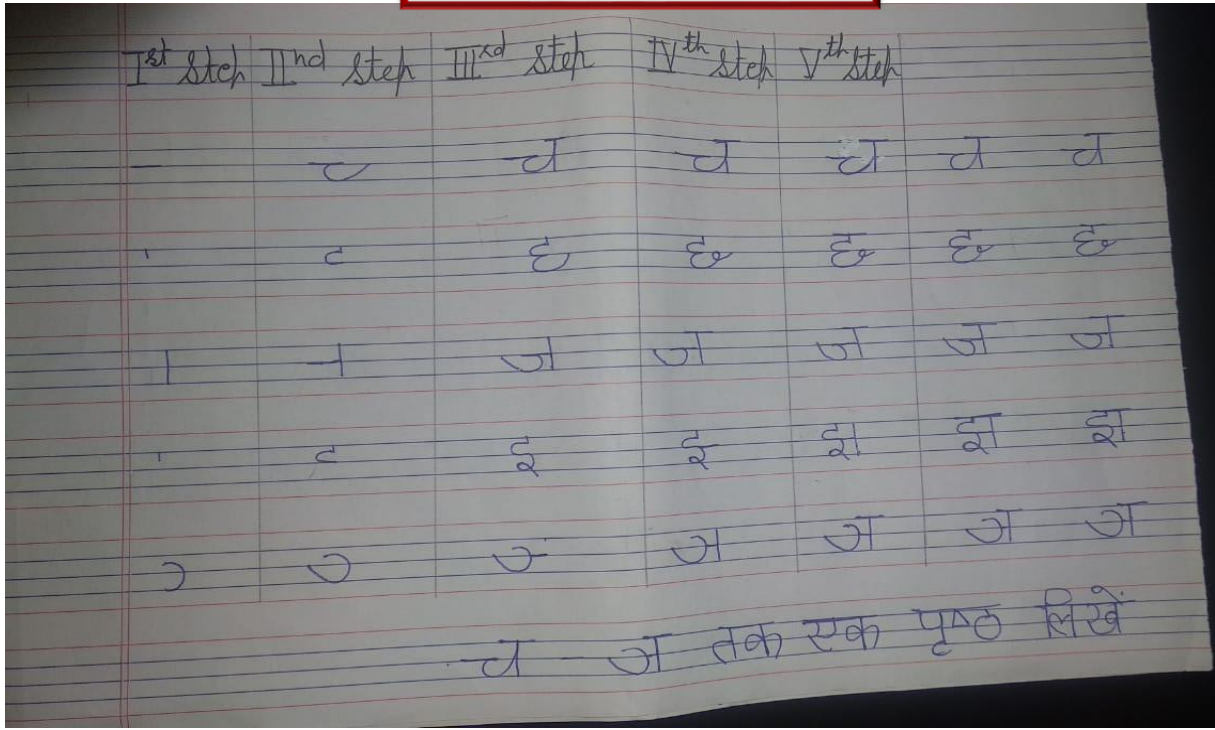 Ist Step IInd step IIIrd step IVth step Vth step
- च च च च च
' c छ छ छ छ
। ज ज ज ज ज
' c इ झ झ झ
ञ ञ ञ ञ
च - ञ तक एक पृष्ठ लिखें